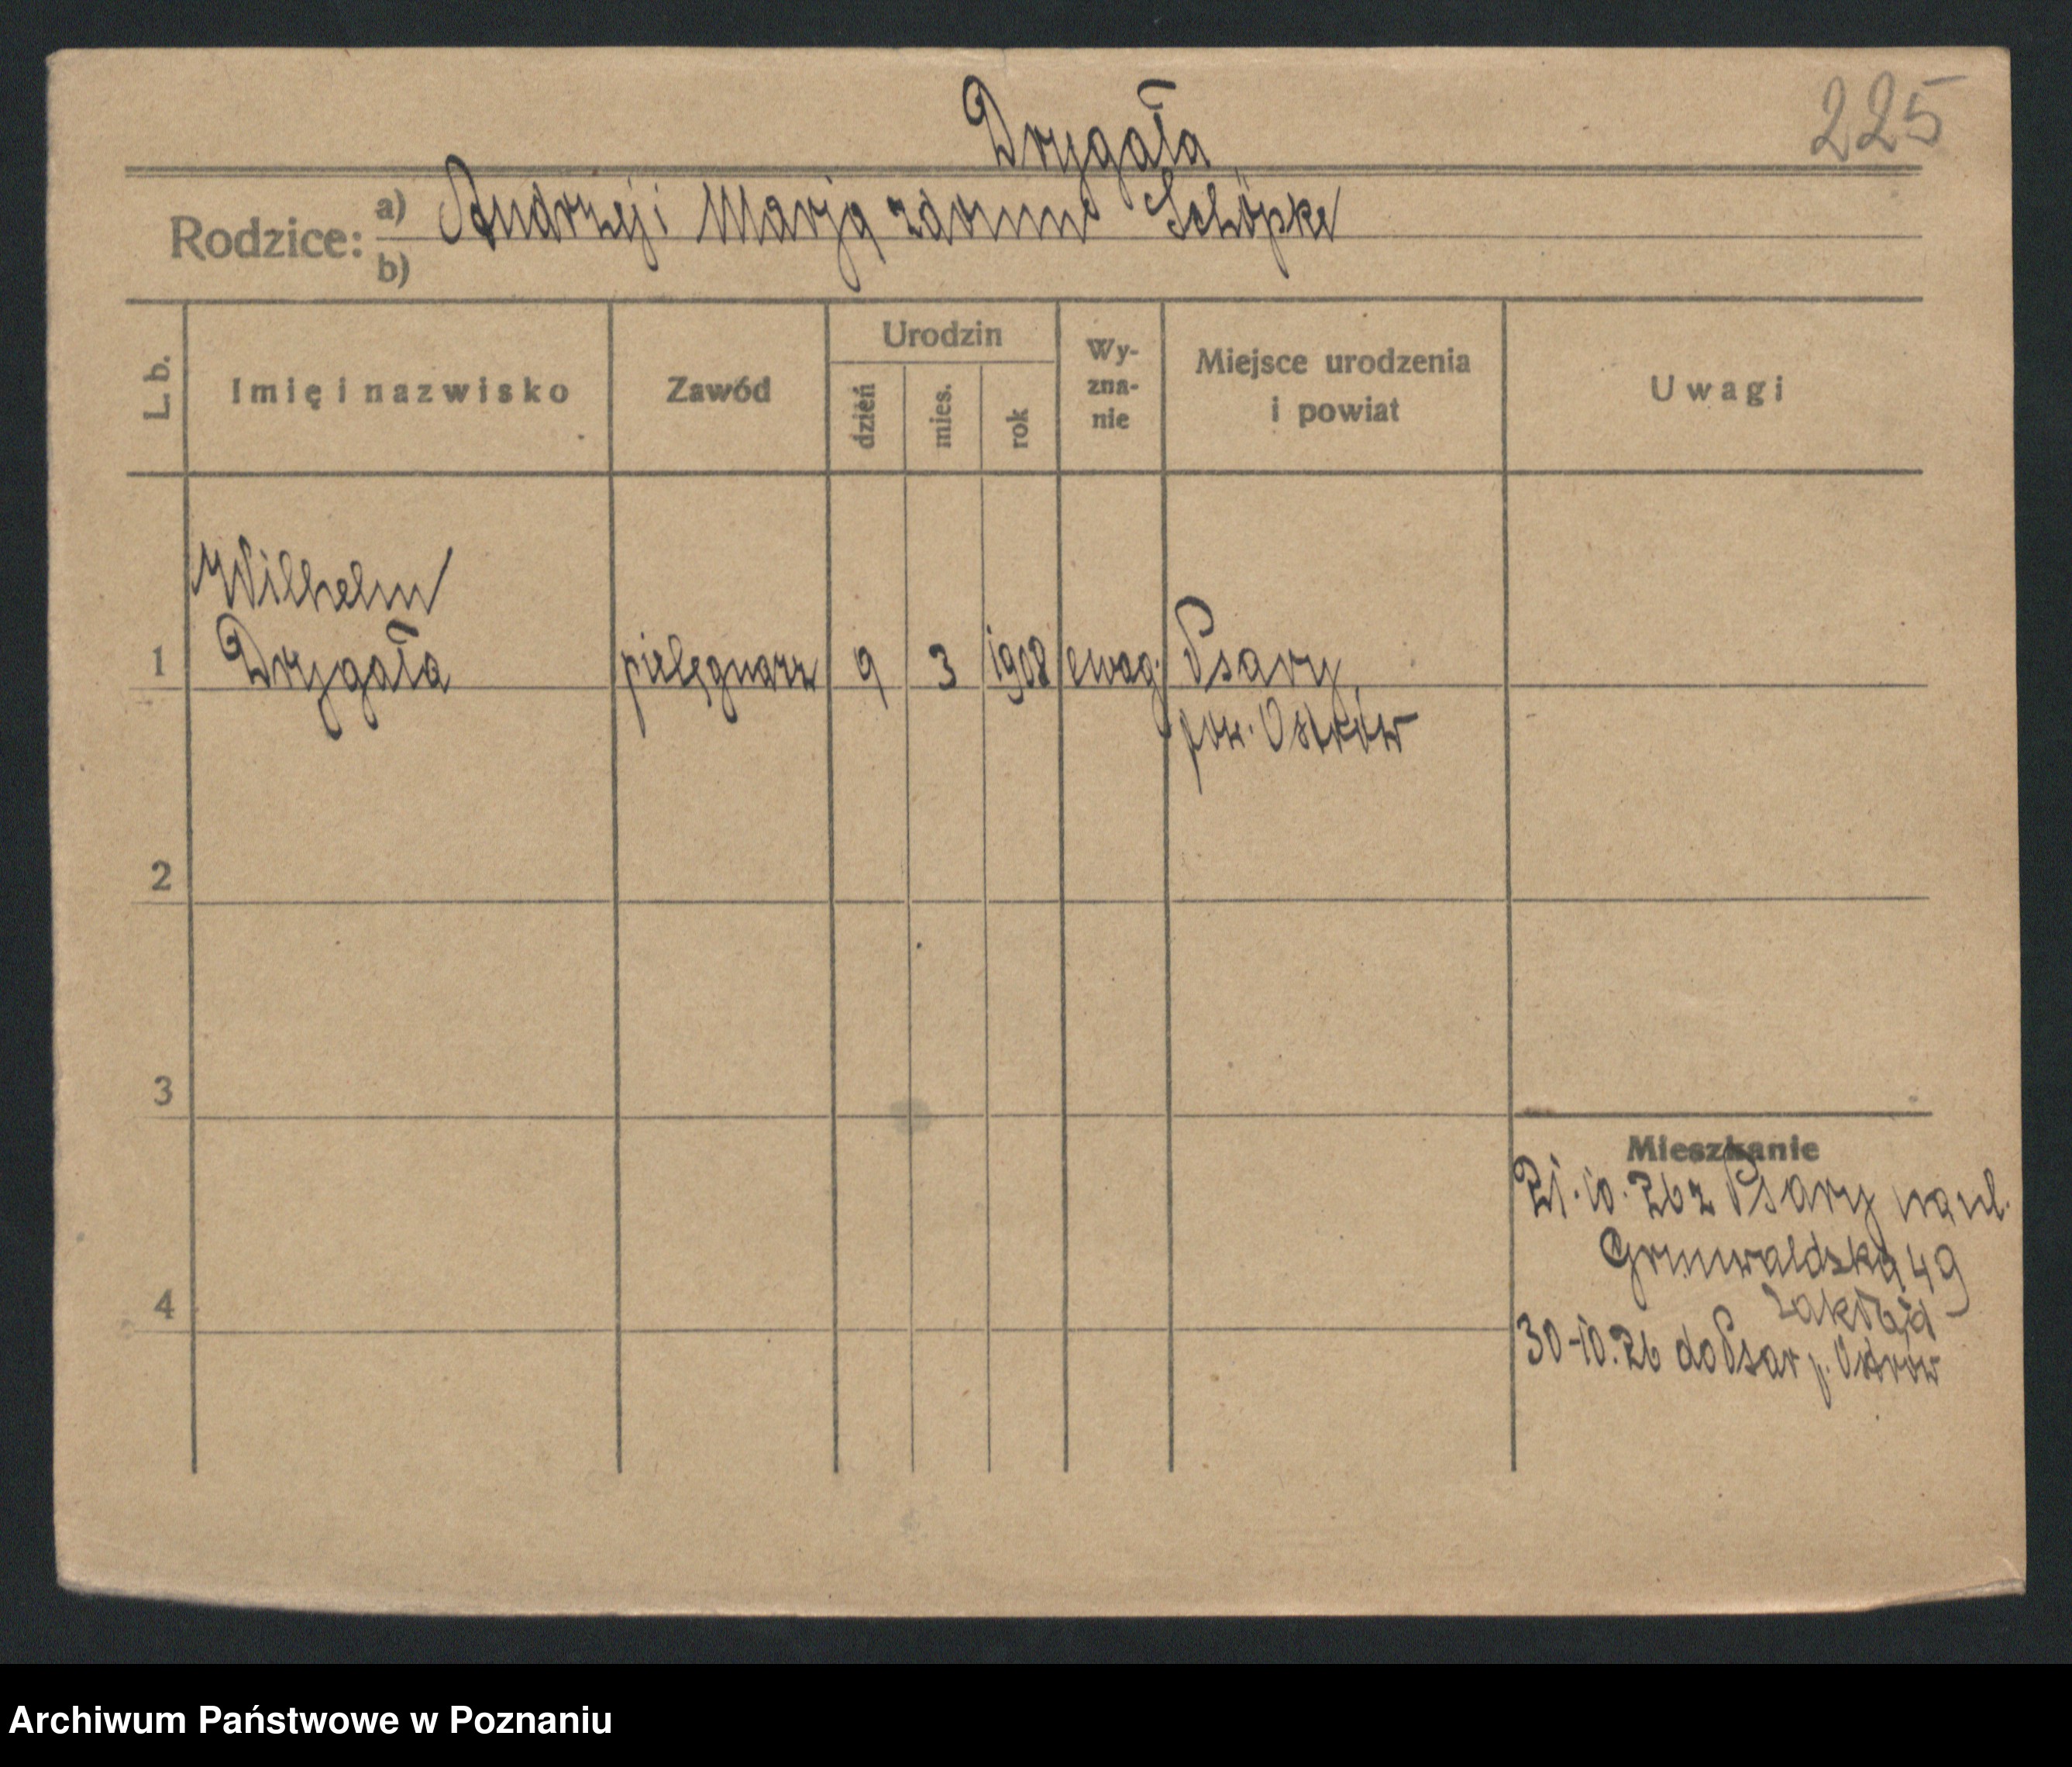 225
Drygała
Rodzice: a) Andrzej i Marja z domu Schöpke
b)
L. b.
Imię i nazwisko
Zawód
Urodzin
dzień
mies.
rok
Wy-
zna-
nie
Miejsce urodzenia
i powiat
Uwagi
Wilhelm
1 Drygała pielęgniarz 9 3 1908 ewag. Psary
pow. Ostrów
2
3
4
Mieszkanie
21.10.26 z Psary na ul.
Grunwaldzką 49
zakład
30-10.26 do Psar p. Ostrów
Archiwum Państwowe w Poznaniu